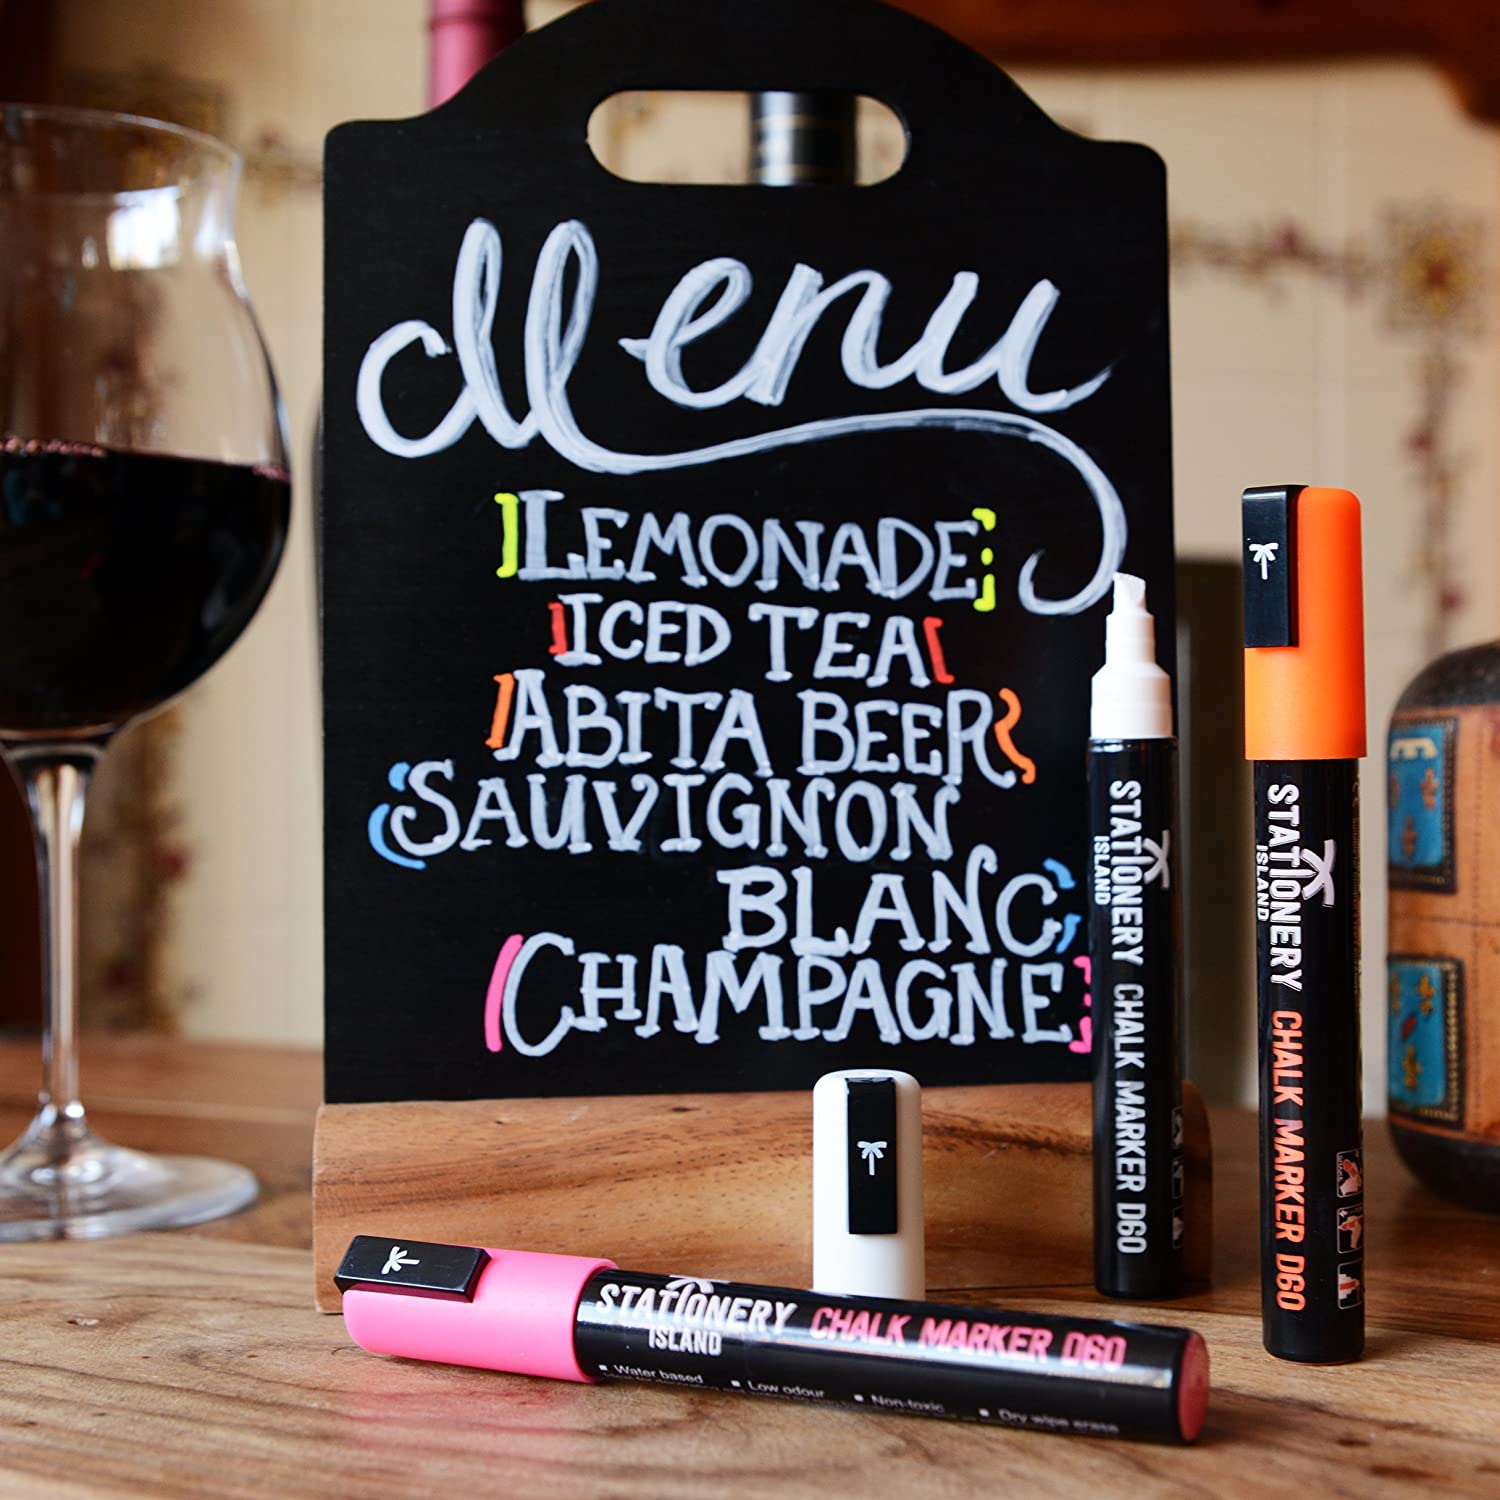 Menu
LEMONADE
ICED TEA
ABITA BEER
SAUVIGNON
BLANC
CHAMPAGNE
STATIONERY
ISLAND
CHALK MARKER D60
STATIONERY
ISLAND
CHALK MARKER D60
STATIONERY
ISLAND
CHALK MARKER D60
Water based
Low odour
Non-toxic
Dry wipe erase